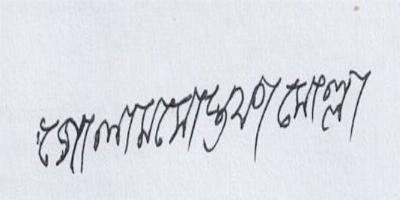 গোলাম মোস্তফা মোল্লা